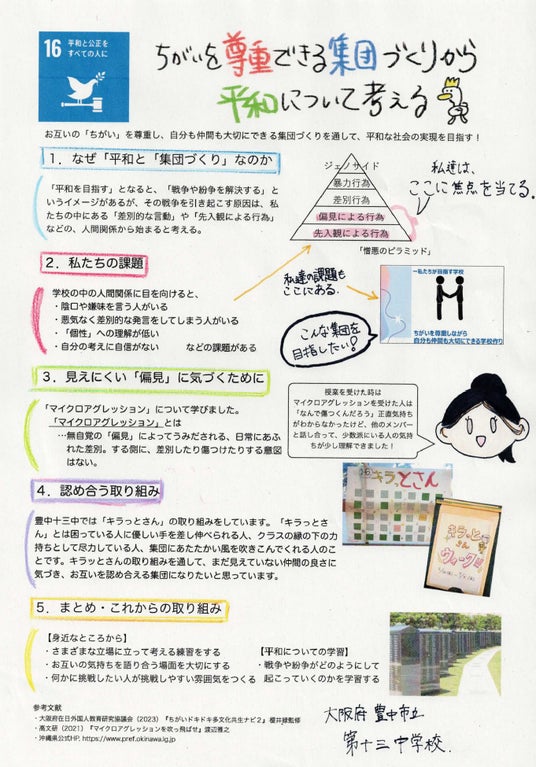 16 平和と公正を
すべての人に
ちがいを尊重できる集団づくりから
平和について考える
お互いの「ちがい」を尊重し、自分も仲間も大切にできる集団づくりを通して、平和な社会の実現を目指す！
1．なぜ「平和と「集団づくり」なのか
「平和を目指す」となると、「戦争や紛争を解決する」と
いうイメージがあるが、その戦争を引き起こす原因は、私
たちの中にある「差別的な言動」や「先入観による行為」
などの、人間関係から始まると考える。
ジェノサイド
暴力行為
差別行為
偏見による行為
先入観による行為
「憎悪のピラミッド」
私達は、
ここに焦点を当てる。
2．私たちの課題
学校の中の人間関係に目を向けると、
・陰口や嫌味を言う人がいる
・悪気なく差別的な発言をしてしまう人がいる
・「個性」への理解が低い
・自分の考えに自信がない　などの課題がある
私達の課題も
ここにある。
こんな集団を
目指したい！
―私たちが目指す学校
ちがいを尊重しながら
自分も仲間も大切にできる学校作り
3．見えにくい「偏見」に気づくために
「マイクロアグレッション」について学びました。
「マイクロアグレッション」とは
…無自覚の「偏見」によってうみだされる、日常にあふ
れた差別。する側に、差別したり傷つけたりする意図
はない。
授業を受けた時は
マイクロアグレッションを受けた人は
「なんで傷つくんだろう」正直気持ち
がわからなかったけど、他のメンバー
と話し合って、少数派にいる人の気持
ちが少し理解できました！
4．認め合う取り組み
豊中十三中では「キラっとさん」の取り組みをしています。「キラっとさ
ん」とは困っている人に優しい手を差し伸べられる人、クラスの縁の下の力
持ちとして尽力している人、集団にあたたかい風を吹きこんでくれる人のこ
とです。キラっとさんの取り組みを通して、まだ見えていない仲間の良さに
気づき、お互いを認め合える集団になりたいと思っています。
キラっとさん
キラっと
さん
ウィーク!!
5．まとめ・これからの取り組み
【身近なところから】
・さまざまな立場に立って考える練習をする
・お互いの気持ちを語り合う場面を大切にする
・何かに挑戦したい人が挑戦しやすい雰囲気をつくる
【平和についての学習】
・戦争や紛争がどのようにして
起こっていくのかを学習する
参考文献
・大阪府在日外国人教育研究協議会（2023）『ちがいドキドキ多文化共生ナビ2』櫻井緑監修
・高文研（2021）『マイクロアグレッションを吹っ飛ばせ』渡辺雅之
・沖縄県公式HP, https://www.pref.okinawa.lg.jp
大阪府 豊中市立
第十三中学校．